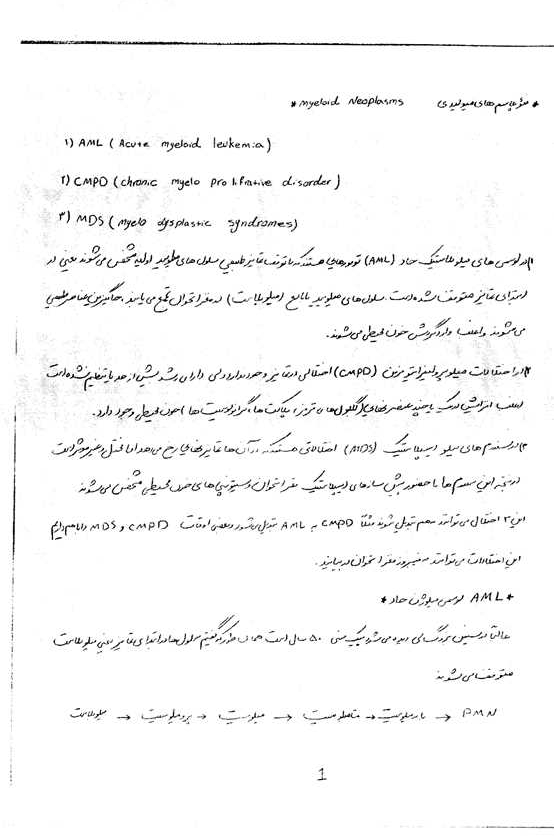 * نئوپلاسم های میلوئیدی Myeloid Neoplasms *
۱) AML ( Acute myeloid leukemia )
۲) CMPD ( chronic myelo prolifrative disorder )
۳) MDS ( myelo dysplastic syndromes )
۱) در لوسمی های میلوبلاستیک حاد (AML) تومورهایی هستند که با توقف تمایز طبیعی سلول های میلوئید اولیه مشخص می شوند یعنی در
ابتدای تمایز متوقف شده است. سلول های میلوئید نابالغ (میلوبلاست) در مغز استخوان تجمع می یابند، جایگزین عناصر طبیعی
می شوند و اغلب وارد گردش خون محیطی می شوند.
۲) در اختلالات میلوپرولیفراتیو مزمن (CMPD) اختلالی در تمایز وجود ندارد ولی دارای رشد بیش از حد یا تنظیم نشده است
اغلب افزایش یک یا چند عنصر نهایی (گلبول های قرمز، پلاکت ها، گرانولوسیت ها) خون محیطی وجود دارد.
۳) در سندرم های میلو دیسپلاستیک (MDS) اختلالاتی هستند که در آن ها تمایز نهایی رخ می دهد اما مختل و غیر موثر است
در نتیجه این سندرم ها با حضور پیش سازهای دیسپلاستیک مغز استخوان و سیتوپنی های خون محیطی مشخص می شوند
این ۳ اختلال می توانند به هم تبدیل شوند مثلاً CMPD به AML تبدیل می شود و بعضی اوقات CMPD و MDS را با هم داریم
این اختلالات می توانند به فیبروز مغز استخوان در بیایند.
* AML لوسمی میلوژن حاد *
غالباً در سنین بزرگسالی دیده می شود پیک سنی ۵۰ سال است همان طور که گفتیم سلول ها در ابتدای تمایز یعنی میلوبلاست
متوقف می شوند
میلوبلاست → پرومیلوسیت → میلوسیت → متامیلوسیت → باند میلوسیت → PMN
1